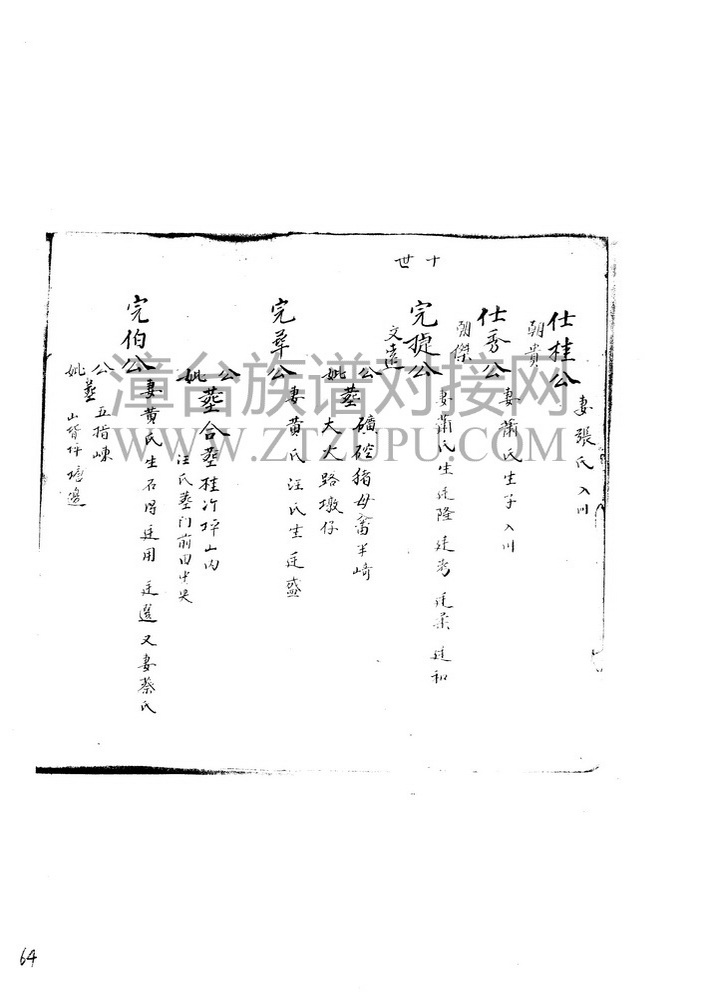 十世
仕桂公
朝貴
妻張氏 入川
仕秀公
朝傑
妻蕭氏生子 入川
完捷公
文遠
妻蕭氏生廷隆 廷 廷 廷和
公
妣葬 礦硿猪母畬半崎
大大路墩仔
完華公
妻黃氏汪氏生廷盛
公
妣葬合葬桂竹坪山内
汪氏墓门前田中央
完伯公
妻黄氏生 廷用 廷選 又妻蔡氏
公
妣葬 五指崠
山背坪邊
漳台族谱对接网
WWW.ZTZUPU.COM
64